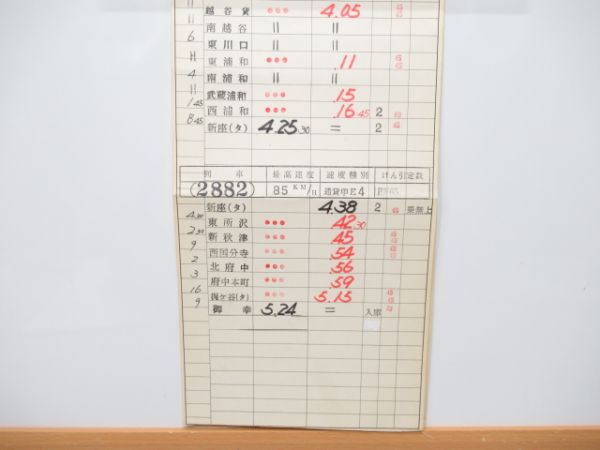 11 越谷貨 ••• 4.05
11 南越谷 〃 〃
6 東川口 〃 〃
H 東浦和 ••• .11
4 南浦和 〃 〃
H 武蔵浦和 ••• .15
1 45 西浦和 ••• .16 45 2
8 45 新座(タ) 4.25 30 = 2
列車 最高速度 速度種別 けん引定数
(2882) 85 KM/H 通貨甲E4
新座(タ) 4.38 2 乗無上
東所沢 ••• .42 30
新秋津 ••• .45
9 西国分寺 ••• .54
2 北府中 ••• .56
3 府中本町 ••• .59
16 梶ケ谷(タ) ••• 5.15
9 御幸 5.24 = 入庫